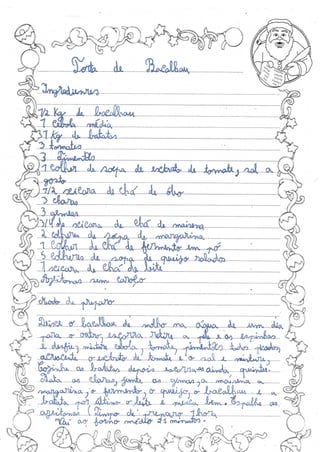 Torta de Bacalhau
Ingredienres
1/2 Kg de bacalhau
1 cebola média
1 kg de batatas
2 tomates
3 Pimentões
1 colher de sopa de extrato de tomate, sal a
gosto
1/2 xeicara de chá de óleo
3 claras
3 gemas
3/4 de xeicara de chá de maisena
2 colheres de sopa de margarina
1 colher de chá de fermento em pó
5 colheres de sopa de queijo ralados
1 xicara de chá de leite
Azeitonas sem caroço
Modo de preparo
Deixe o bacalhau de molho na água de um dia
para o outro, escorra retire a pele e os espinhos
e desfie, misture cebola, tomate, pimentões tudo picados,
acrescente o extrato de tomate e o sal e misture,
Cozinhe as batatas depois escorra ainda quente.
Bata as claras, junte as gemas, a maisena a
margarina, o fermento, o queijo, o bacalhau e a
batata por último o leite e mexa bem. Espalhe as
azeitonas (Tempo de preparo 1 hora
Vai ao forno médio 25 minutos.